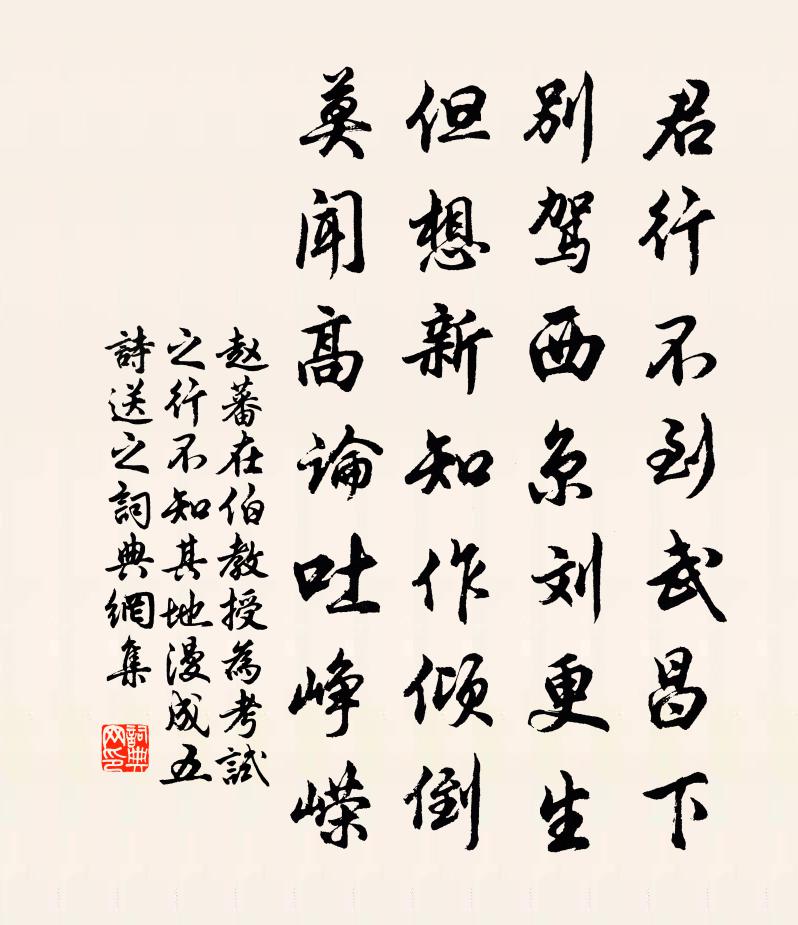 君行不到武昌下
别驾西京刘更生
但想新知作倾倒
莫闻高論吐峥嵘
赵蕃在伯教授为考試
之行不知其地漫成五
詩送之詞典網集
詞典网印